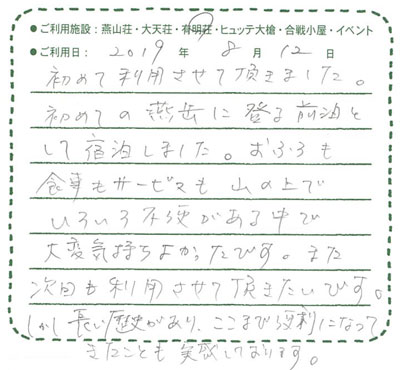 ●ご利用施設：燕山荘・大天荘・有明荘・ヒュッテ大槍・合戦小屋・イベント
●ご利用日：2019年8月12日
初めて利用させて頂きました。
初めての燕岳に登る前泊と
して宿泊しました。おふろも
食事もサービスも山の上で
いろいろ不便がある中で
大変気持ちよかったです。また
次回も利用させて頂きたいです。
しかし長い歴史があり、ここまで便利になって
きたことも実感しております。